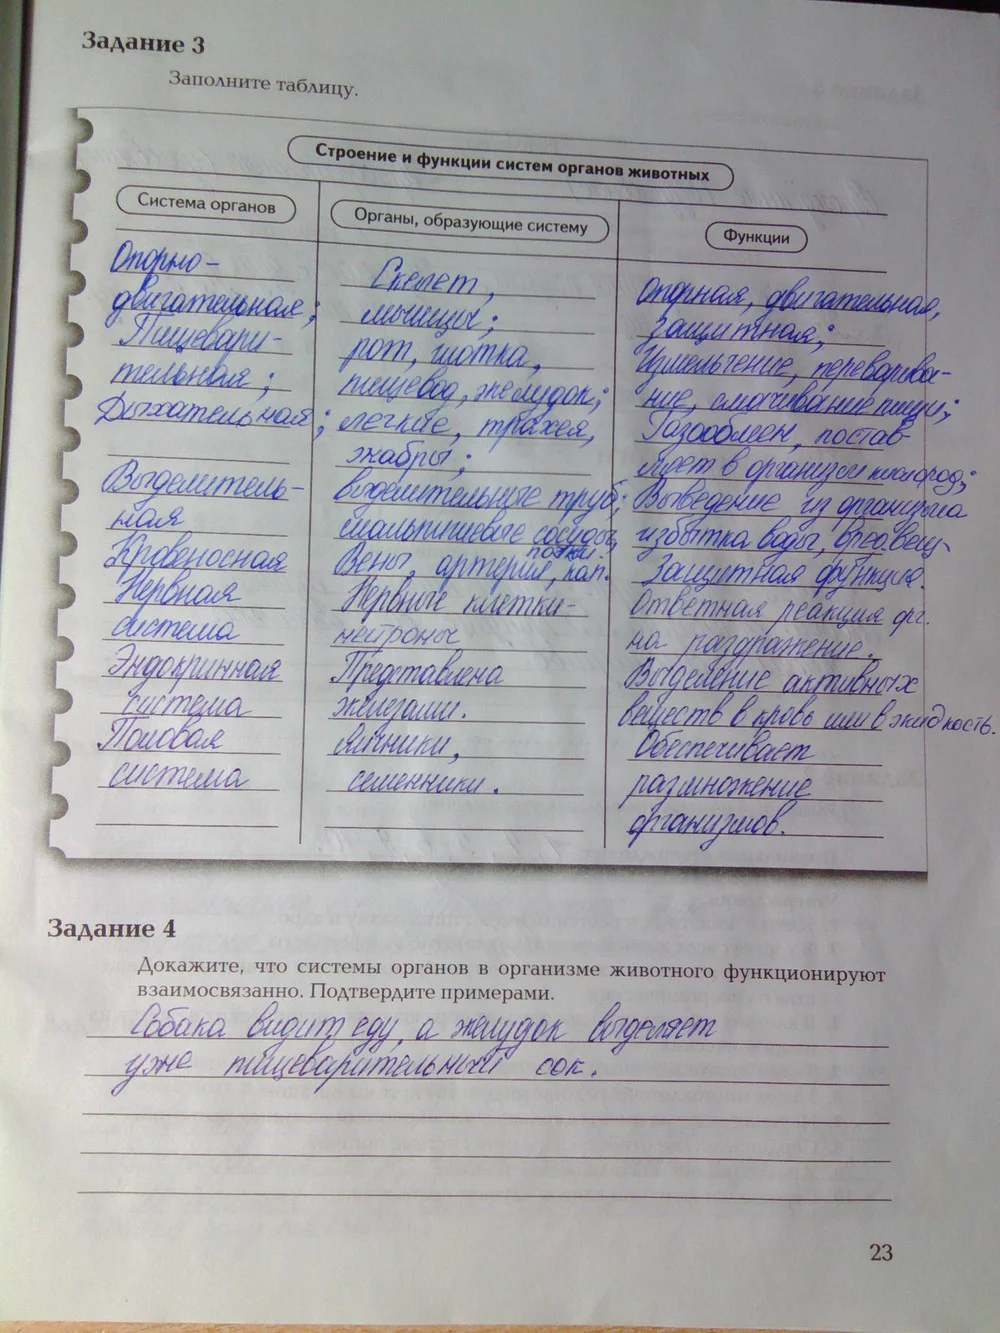 Задание 3
Заполните таблицу.
Строение и функции систем органов животных
Система органов
Опорно-
двигательная;
Пищевари-
тельная;
Дыхательная;
Выделитель-
ная
Кровеносная
Нервная
система
Эндокринная
система
Половая
система
Органы, образующие систему
Скелет,
мышцы;
рот, глотка,
пищевод, желудок;
легкие, трахея,
жабры;
выделительные труб;
мальпигиевые сосуды,
почки.
Вены, артерия, кап.
Нервные клетки-
нейроны
Представлена
железами.
Яичники,
семенники.
Функции
Опорная, двигательная,
защитная;
Измельчение, переварива-
ние, смачивание пищи;
Газообмен, постав-
ляет в организм кислород;
Выведение из организма
избытка воды,
Защитная функция.
Ответная реакция орг.
на раздражение.
Выделение активных
веществ в кровь или в жидкость.
Обеспечивает
размножение
организмов.
Задание 4
Докажите, что системы органов в организме животного функционируют
взаимосвязанно. Подтвердите примерами.
Собака видит еду, а желудок выделяет
уже пищеварительный сок.
23